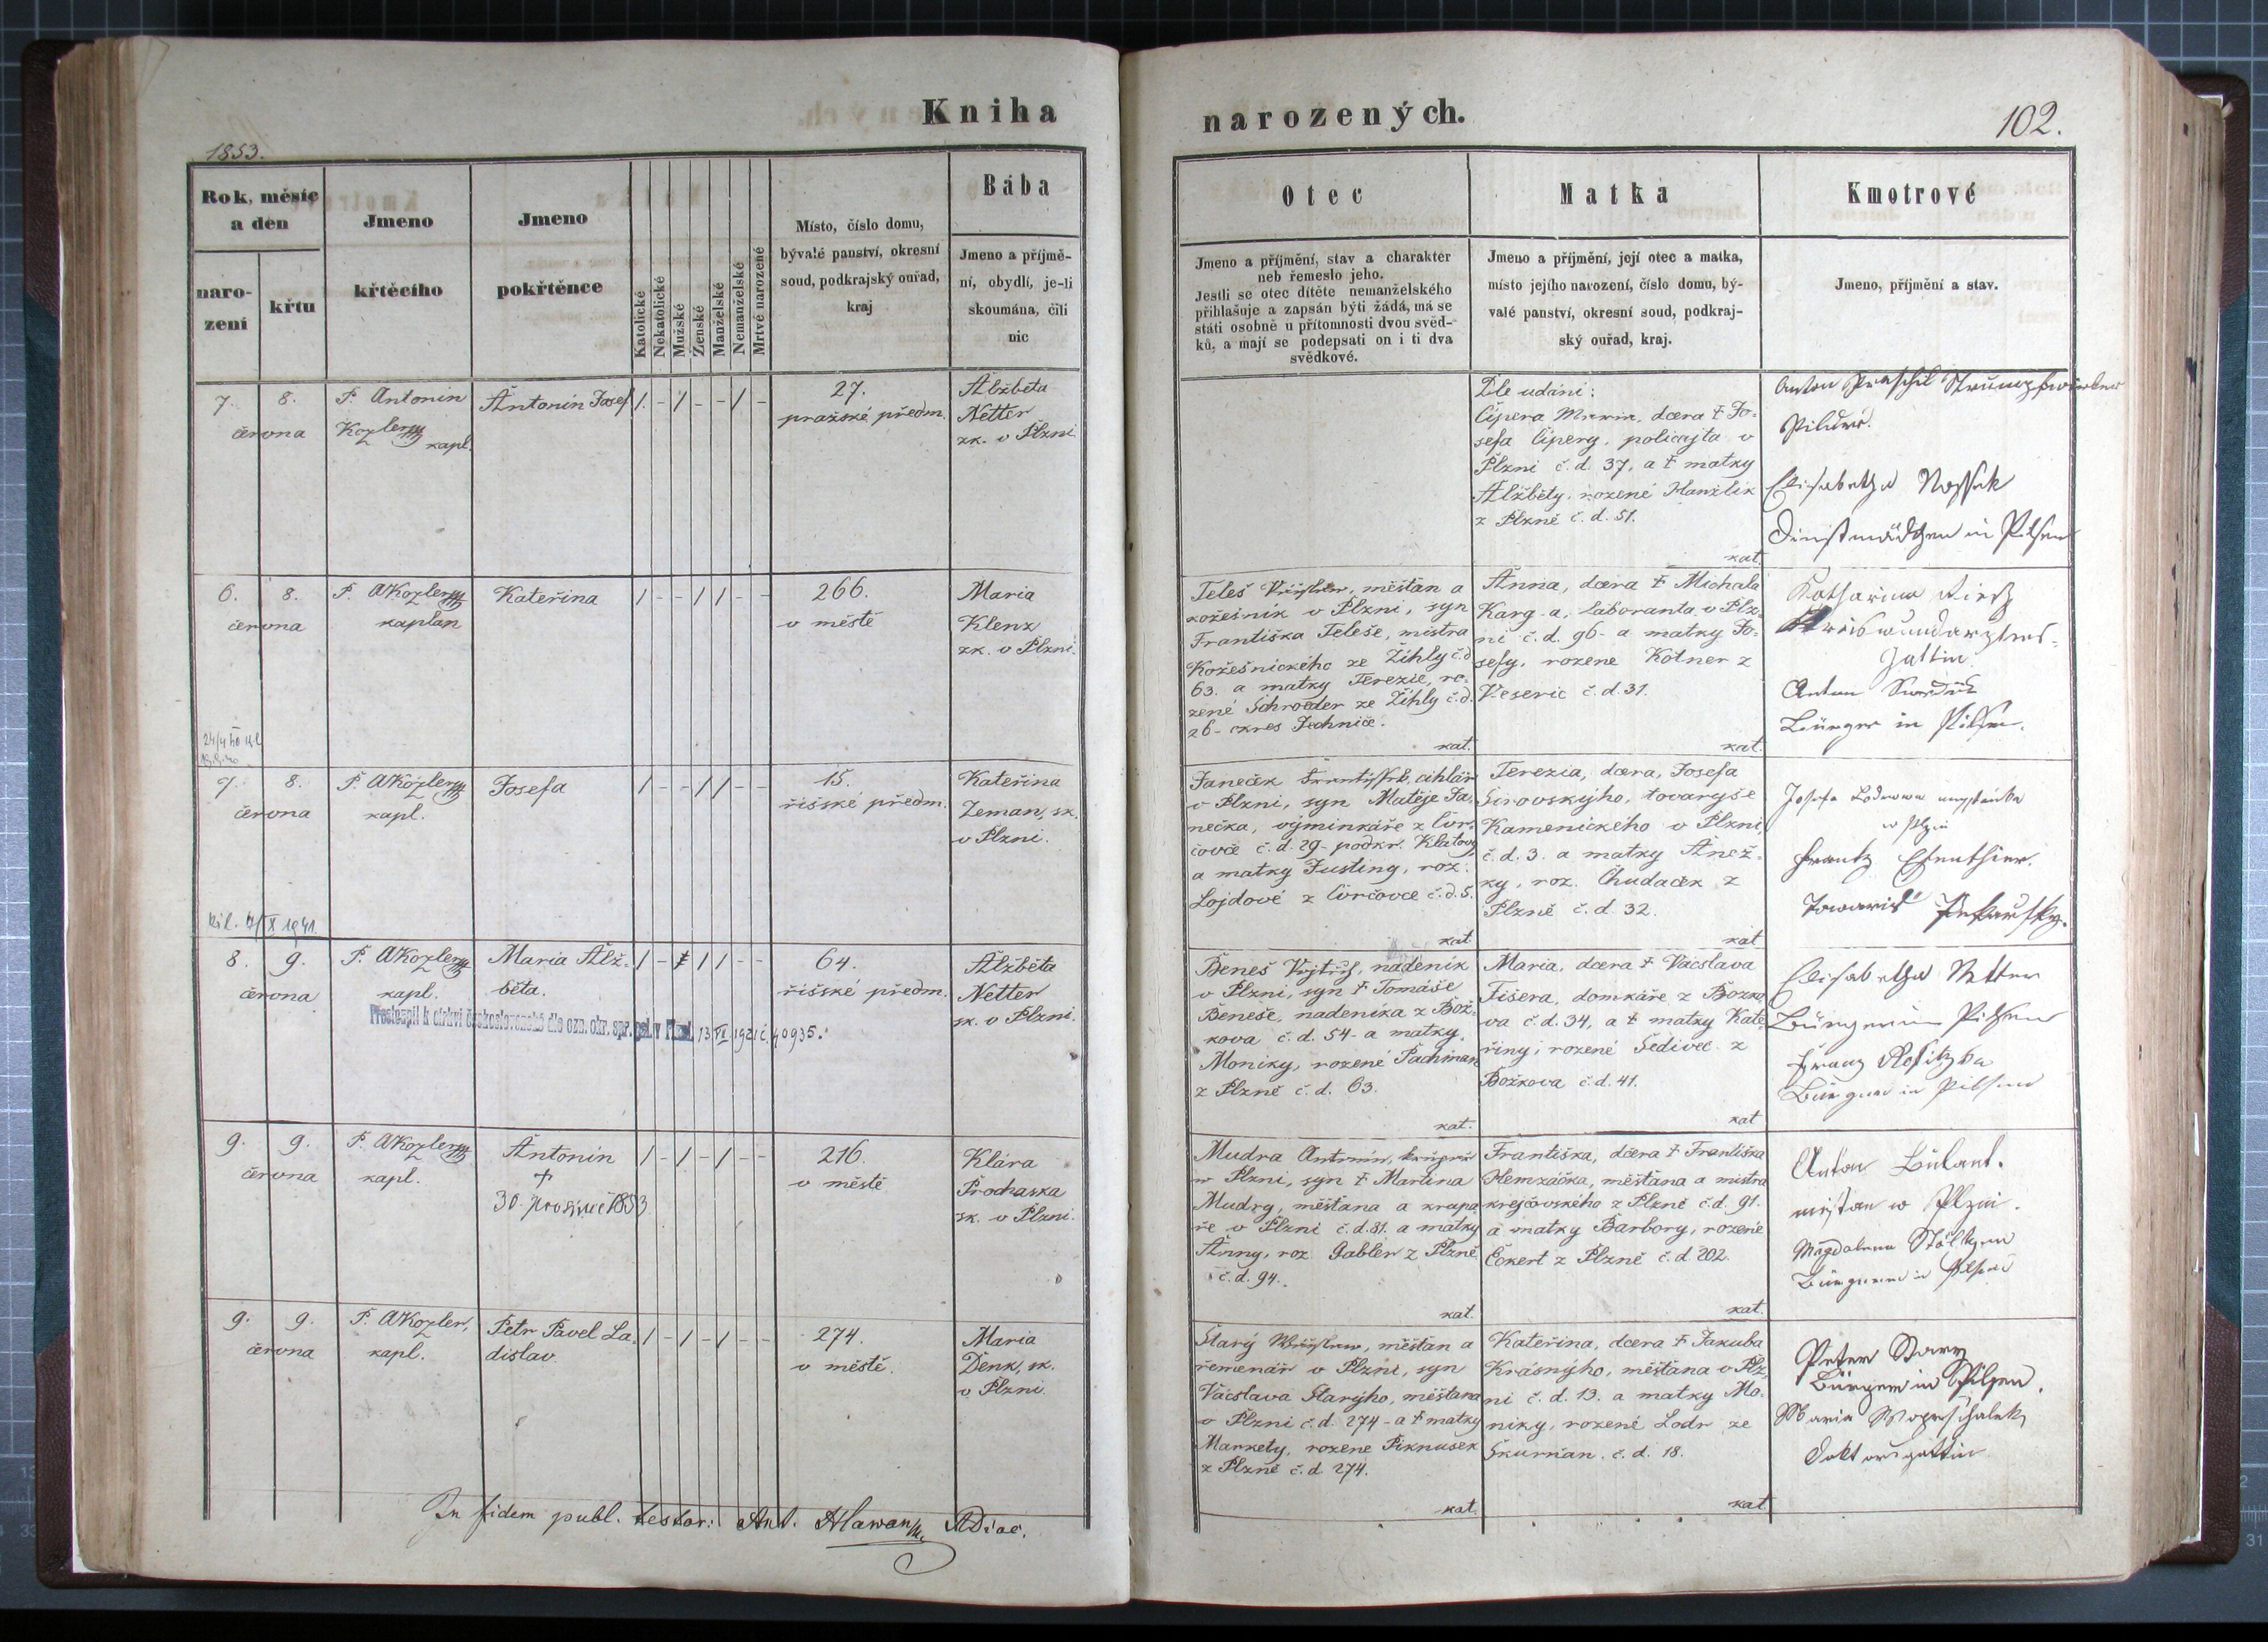 Kniha
narozených.
102.
1853.
Rok, měsíc
a den
naro-
zení
křtu
Jmeno
křtěcího
Jmeno
pokřtěnce
Katolické
Nekatolické
Mužské
Ženské
Manželské
Nemanželské
Mrtvé narozené
Místo, číslo domu,
bývalé panství, okresní
soud, podkrajský ouřad,
kraj
Bába
Jmeno a příjmě-
ní, obydlí, je-li
skoumána, čili
nic
Otec
Jmeno a příjmění, stav a charakter
neb řemeslo jeho.
Jestli se otec dítěte nemanželského
přihlašuje a zapsán býti žádá, má se
státi osobně u přítomnosti dvou svěd-
ků, a mají se podepsati on i ti dva
svědkové.
Matka
Jmeno a příjmění, její otec a matka,
místo jejího narození, číslo domu, bý-
valé panství, okresní soud, podkraj-
ský ouřad, kraj.
Kmotrové
Jmeno, příjmění a stav.
7. 8.
června
P. Antonin
Kozler
kapl.
Antonín Josef
/ - / - - / -
27.
pražské předm.
Alžbeta
Netter
zk. v Plzni
Dle udání:
Čipera Maria, dcera † Jo-
sefa Čipery, policajta v
Plzni č.d. 37, a † matky
Alžběty, rozené Hanžlik
z Plzně č.d. 51.
kat.
Anton
Elisabetha
Dienstmädchen in Pilsen
6. 8.
června
P. AKozler
kaplan
Kateřina
/ - - / / - -
266.
v městě
Maria
Klenz
zk. v Plzni.
Teleš měšťan a
kožešník v Plzni, syn
Františka Teleše, mistra
Kožešnického ze Žihly č.d
63. a matky Terezie, ro-
zené Schroeder ze Žihly č.d.
26- okres Jechnice.
kat.
Anna, dcera † Michala
Karg-a, laboranta v Plz-
ni č.d. 96- a matky Jo-
sefy, rozene Kotner z
Veseric č.d. 31.
kat.
Katharina
Gattin
Anton
Bürger in Pilsen.
7. 8.
června
P. AKozler
kapl.
Josefa
/ - - / / - -
15.
říšské předm.
Kateřina
Zeman, zk.
v Plzni.
Janeček cihlář
v Plzni, syn Matěje Ja-
nečka, výminkáře z
č.d. 29- podkr. Klatovy
a matky Justiny, roz.
Lojdové z č.d. 5.
kat.
Terezia, dcera, Josefa
Sirovskýho, tovaryše
Kamenického v Plzni,
č.d. 3. a matky Anež-
ky, roz. Chudaček z
Plzně č.d. 32.
kat
Josefa
w Plzni
1941.
8. 9.
června
P. AKozler
kapl.
Maria Alž-
běta.
/ - / / - -
64.
říšské předm.
Alžběta
Netter
zk. v Plzni.
13 VI 1921 č. 40935.
Beneš Vojtěch, nádeník
v Plzni, syn † Tomáše
Beneše, nadeníka z Bož-
kova č.d. 54- a matky
Moniky, rozené Pachman
z Plzně č.d. 63.
kat.
Maria, dcera † Vácslava
Fišera, domkáře z Božko-
va č.d. 34, a † matky Kate-
řiny, rozené Šedivec z
Božkova č.d. 41.
kat
Elisabetha Netter
Bürgerin Pilsen
Franz
Bürger in Pilsen
9. 9.
června
P. AKozler
kapl.
Antonín
†
30. prosince 1853
/ - / - / - -
216.
v městě
Klára
Prochaska
zk. v Plzni.
Mudra Antonín,
v Plzni, syn † Martina
Mudry, měšťana a krupa-
ře v Plzni č.d. 81. a matky
Anny, roz. Gabler z Plzně
č.d. 94.
kat.
Františka, dcera † Františka
Hemzáčka, měšťana a mistra
krejčovského z Plzně č.d. 91.
a matky Barbory, rozené
Eckert z Plzně č.d. 202.
kat.
Anton
w Plzni.
Magdalena
Bürgerin in Pilsen
9. 9.
června
P. AKozler,
kapl.
Petr Pavel La-
dislav
/ - / - / - -
274.
v městě.
Maria
Denk, zk.
v Plzni.
Starý měšťan a
řemenář v Plzni, syn
Vácslava Starýho, měšťana
v Plzni č.d. 274- a † matky
Markety, rozene Piknusek
z Plzně č.d. 274.
kat.
Kateřina, dcera † Jakuba
Krásnýho, měšťana v Plz-
ni č.d. 13. a matky Mo-
niky, rozené Lodr ze
Skurňan č.d. 18.
kat.
Peter Stary
Bürger in Pilsen.
Maria
Doktorsgattin
In fidem publ. testor: Ant. Hlawan ADiac.